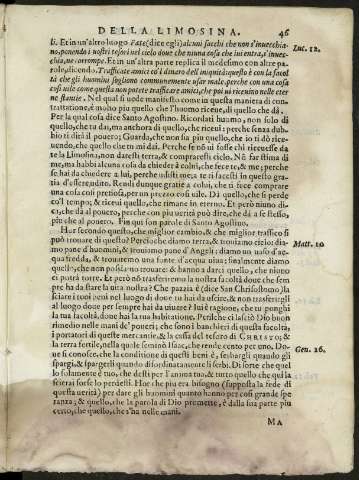 DELLA LIMOSINA. 46
li. Et in un'altro luogo Fate (dice egli) alcuni sacchi che non s'inuecchia-
no, ponendo i nostri tesori nel cielo doue che niuna cosa che lui entra, s'inuec-
chia, ne corrompe. Et in un'altra parte replica il medesimo con altre pa-
role, dicendo. Trafficate amici co'l dinaro dell'iniquità: questo è con la facol
tà che gli huomini sogliono communemente usar male, perche con una cosa
così uile come questa non potete trafficare amici, che poi ui riceuino nelle eter
ne stantie. Nel qual si uede manifesto come in questa maniera di con-
trattatione, è molto piu quello che l'huomo riceue, di quello che dà.
Per la qual cosa dice Santo Agostino. Ricordati huomo, non solo di
quello, che tu dai, ma anchora di quello, che riceui; perche senza dub-
bio ti dirà il pouero; Guarda, che non sia piu quello, che io ti dò rice-
uendo, che quello che tu mi dai. Perche se nõ ui fosse chi riceuesse da
te la Limosina, non daresti terra, & compraresti cielo. Nõ far stima di
me, ma habbi alcuna cosa da chiedere à colui, che fece te, & me; perche
se hai da chiedere a lui, perche udisti me, a te si facesti in questo gra-
tia d'esserendito. Rendi dunque gratie a colui, che ti fece comprare
una cosa così pretiosa, per un prezzo così uile. Dì quello, che si perde
co'l tempo; & riceui quello, che rimane in eterno. Et però niuno di-
ca, che dà al pouero, perche con piu uerità può dire, che dà a se stesso,
piu che al pouero. Fin qui son parole di Santo Agostino.
Hor secondo questo, che miglior cambio, & che miglior traffico si
può trouare di questo? Perciò che diamo terra, & trouiamo cielo: dia-
mo pane d'huomini, & trouiamo pane d'Angeli: diamo un uaso d'ac-
qua fredda, & troueremo una fonte d'acqua uiua: finalmente diamo
quello, che non possiamo trouare: & hanno a darci quello, che niuno
ci potrà torre. Et però nõ trasferiremo la nostra facoltà doue che sem
pre ha da stare la uita nostra? Che pazzia è (dice San Chrisostomo) la
sciare i tuoi beni nel luogo di doue tu hai da uscire, & non trasferirgli
al luogo doue per sempre hai da uiuere? Iui è ragione, che tu ponghi
la tua facoltà, doue hai la tua habitatione. Perilche ci lasciò Dio buon
rimedio nelle mani de' poueri; che sono i banchieri di questa facoltà,
i portatori di queste mercantie, & la cassa del tesoro di CHRISTO; &
la terra fertile, nella quale seminò Isaac, che rende cento per uno. Do-
ue si conosce, che la conditione di questi beni è, serbargli quando gli
spargi, & spargerli quando disordinatamente li serbi. Di sorte che quel
lo solamente è tuo, che desti per l'anima tua, & tutto quello che qui la
scierai forse lo perdesti. Hor che piu era bisogno (supposta la fede di
questa uerità) per dare gli huomini quanto hanno per cosi grande spe
ranza; & quello, che la parola di Dio promette, è dalla sua parte piu
certo, che quello, che s'ha nelle mani.
MA
Luc. 12.
Matt. 10
Gen. 26.